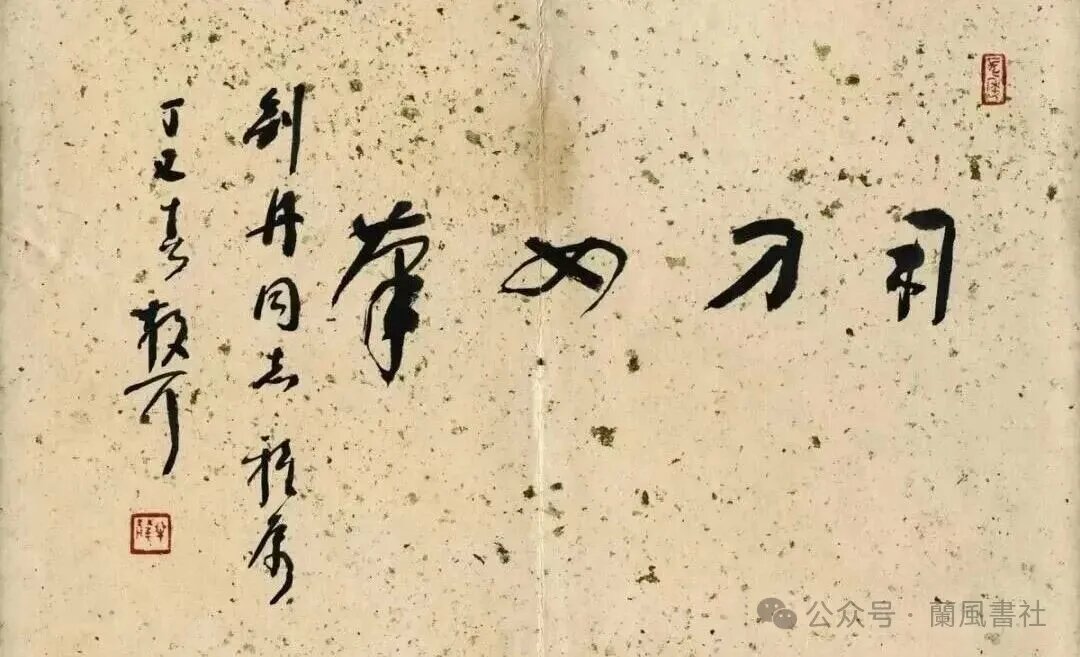 用刀如筆
剑丹同志雅属
丁巳春 散耳
公众号 · 蘭風書社